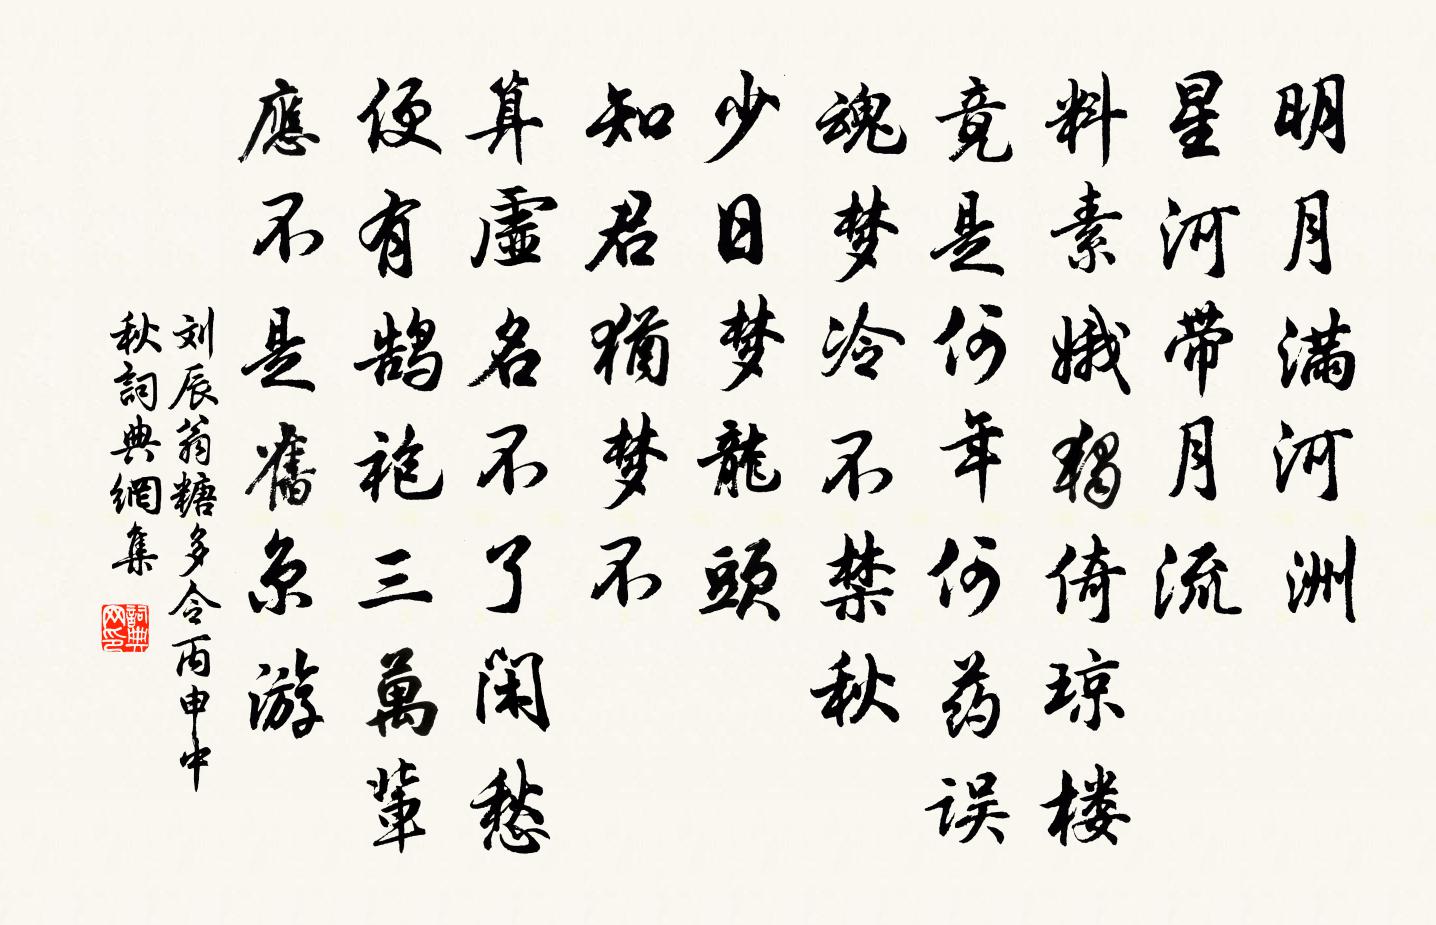 明月满河洲
星河带月流
料素娥独倚琼楼
竟是何年何药误
魂梦冷不禁秋
少日梦龍頭
知君犹梦不
算虛名不了闲愁
便有鹄袍三萬輩
應不是舊京游
刘辰翁糖多令丙申中
秋詞典網集
詞典网印